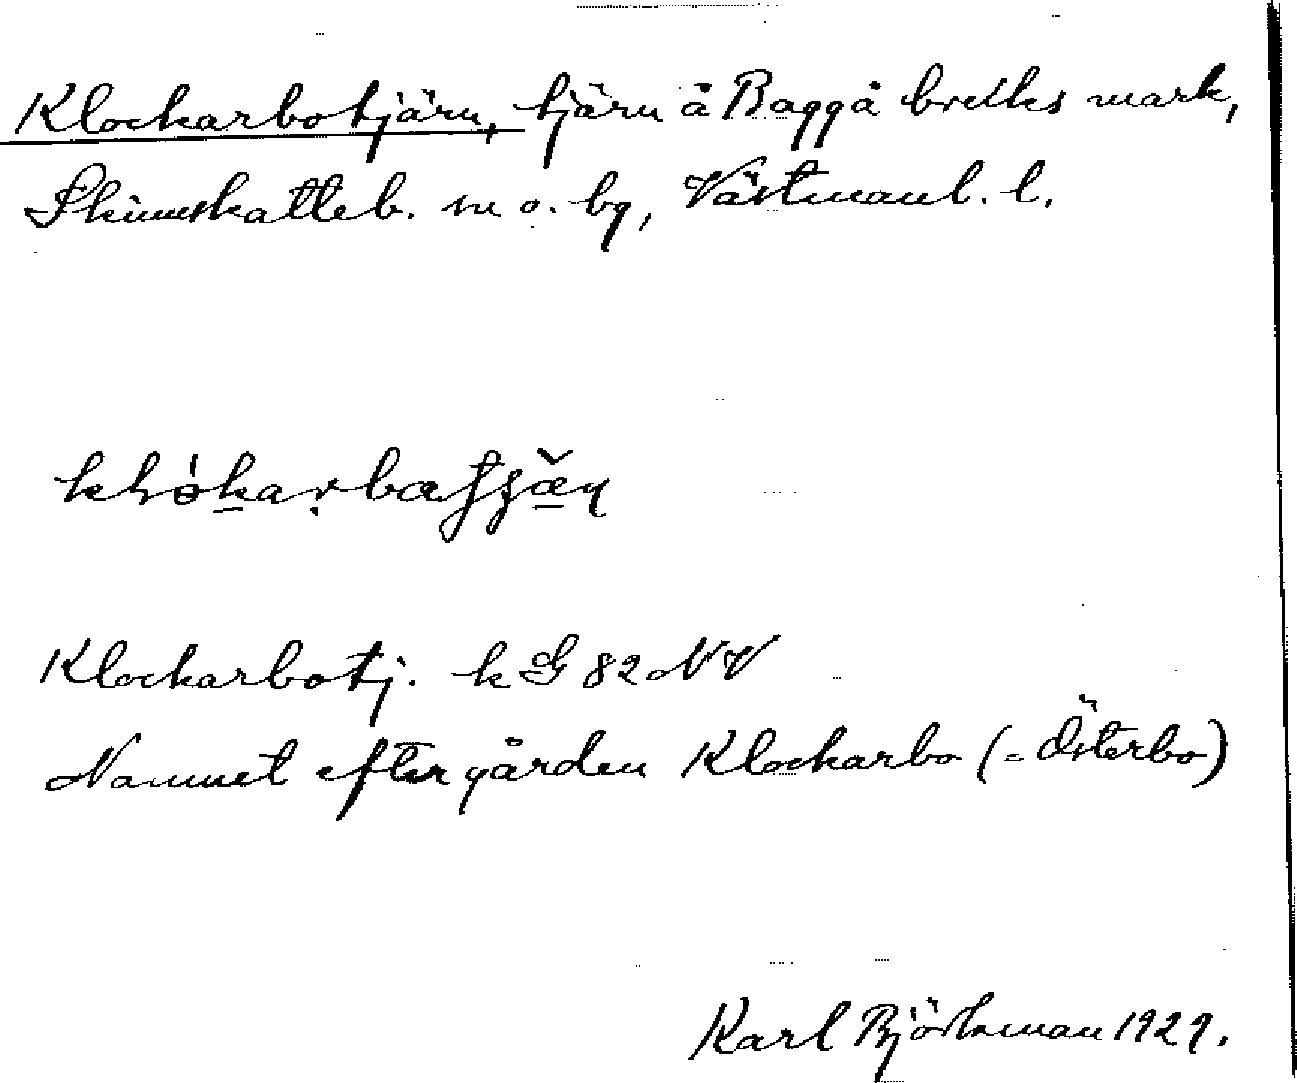 Klockarbotjärn, tjärn å Baggå bruks mark,
Skinnskatteb. sn o. bg, Västmanl. l.
Klockarbotj. k G 82 NV
Namnet efter gården Klockarbo (= Österbo)
Karl Björkman 1929.